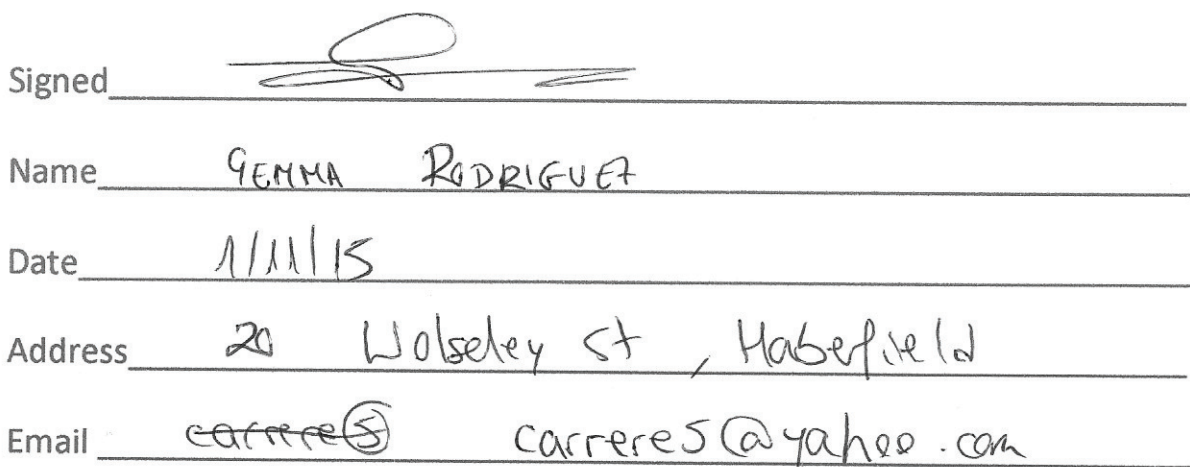 Signed
Name GEMMA RODRIGUEZ
Date 1/11/15
Address 20 Wolseley St, Haberfield
Email carrere5 carrere5@yahoo.com